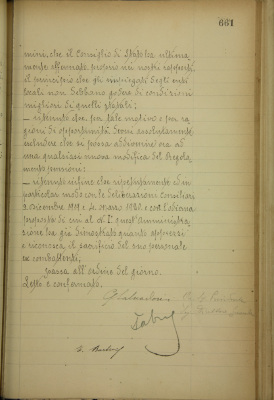 661
mini, che il Consiglio di Stato ha ultima
mente affermato proprio nei nostri rapporti
il principio che gli impiegati degli enti
locali non debbano godere di condizioni
migliori di quelli statali;
— ritenuto che per tale motivo e per ra
gioni di opportunità devesi assolutamente
escludere che si possa addivenire ora ad
una qualsiasi nuova modifica del Regola
mento pensioni;
— ritenuto infine che ripetutamente ed in
particolar modo con le deliberazioni Consiliari
2 Dicembre 1919 e 4 Marzo 1920 e con l'odierna
proposta di cui al N. I quest'Amministra
zione ha già dimostrato quanto apprezzi
e riconosca il sacrificio del suo personale
ex combattenti;
passa all'ordine del giorno.
Letto e confermato.